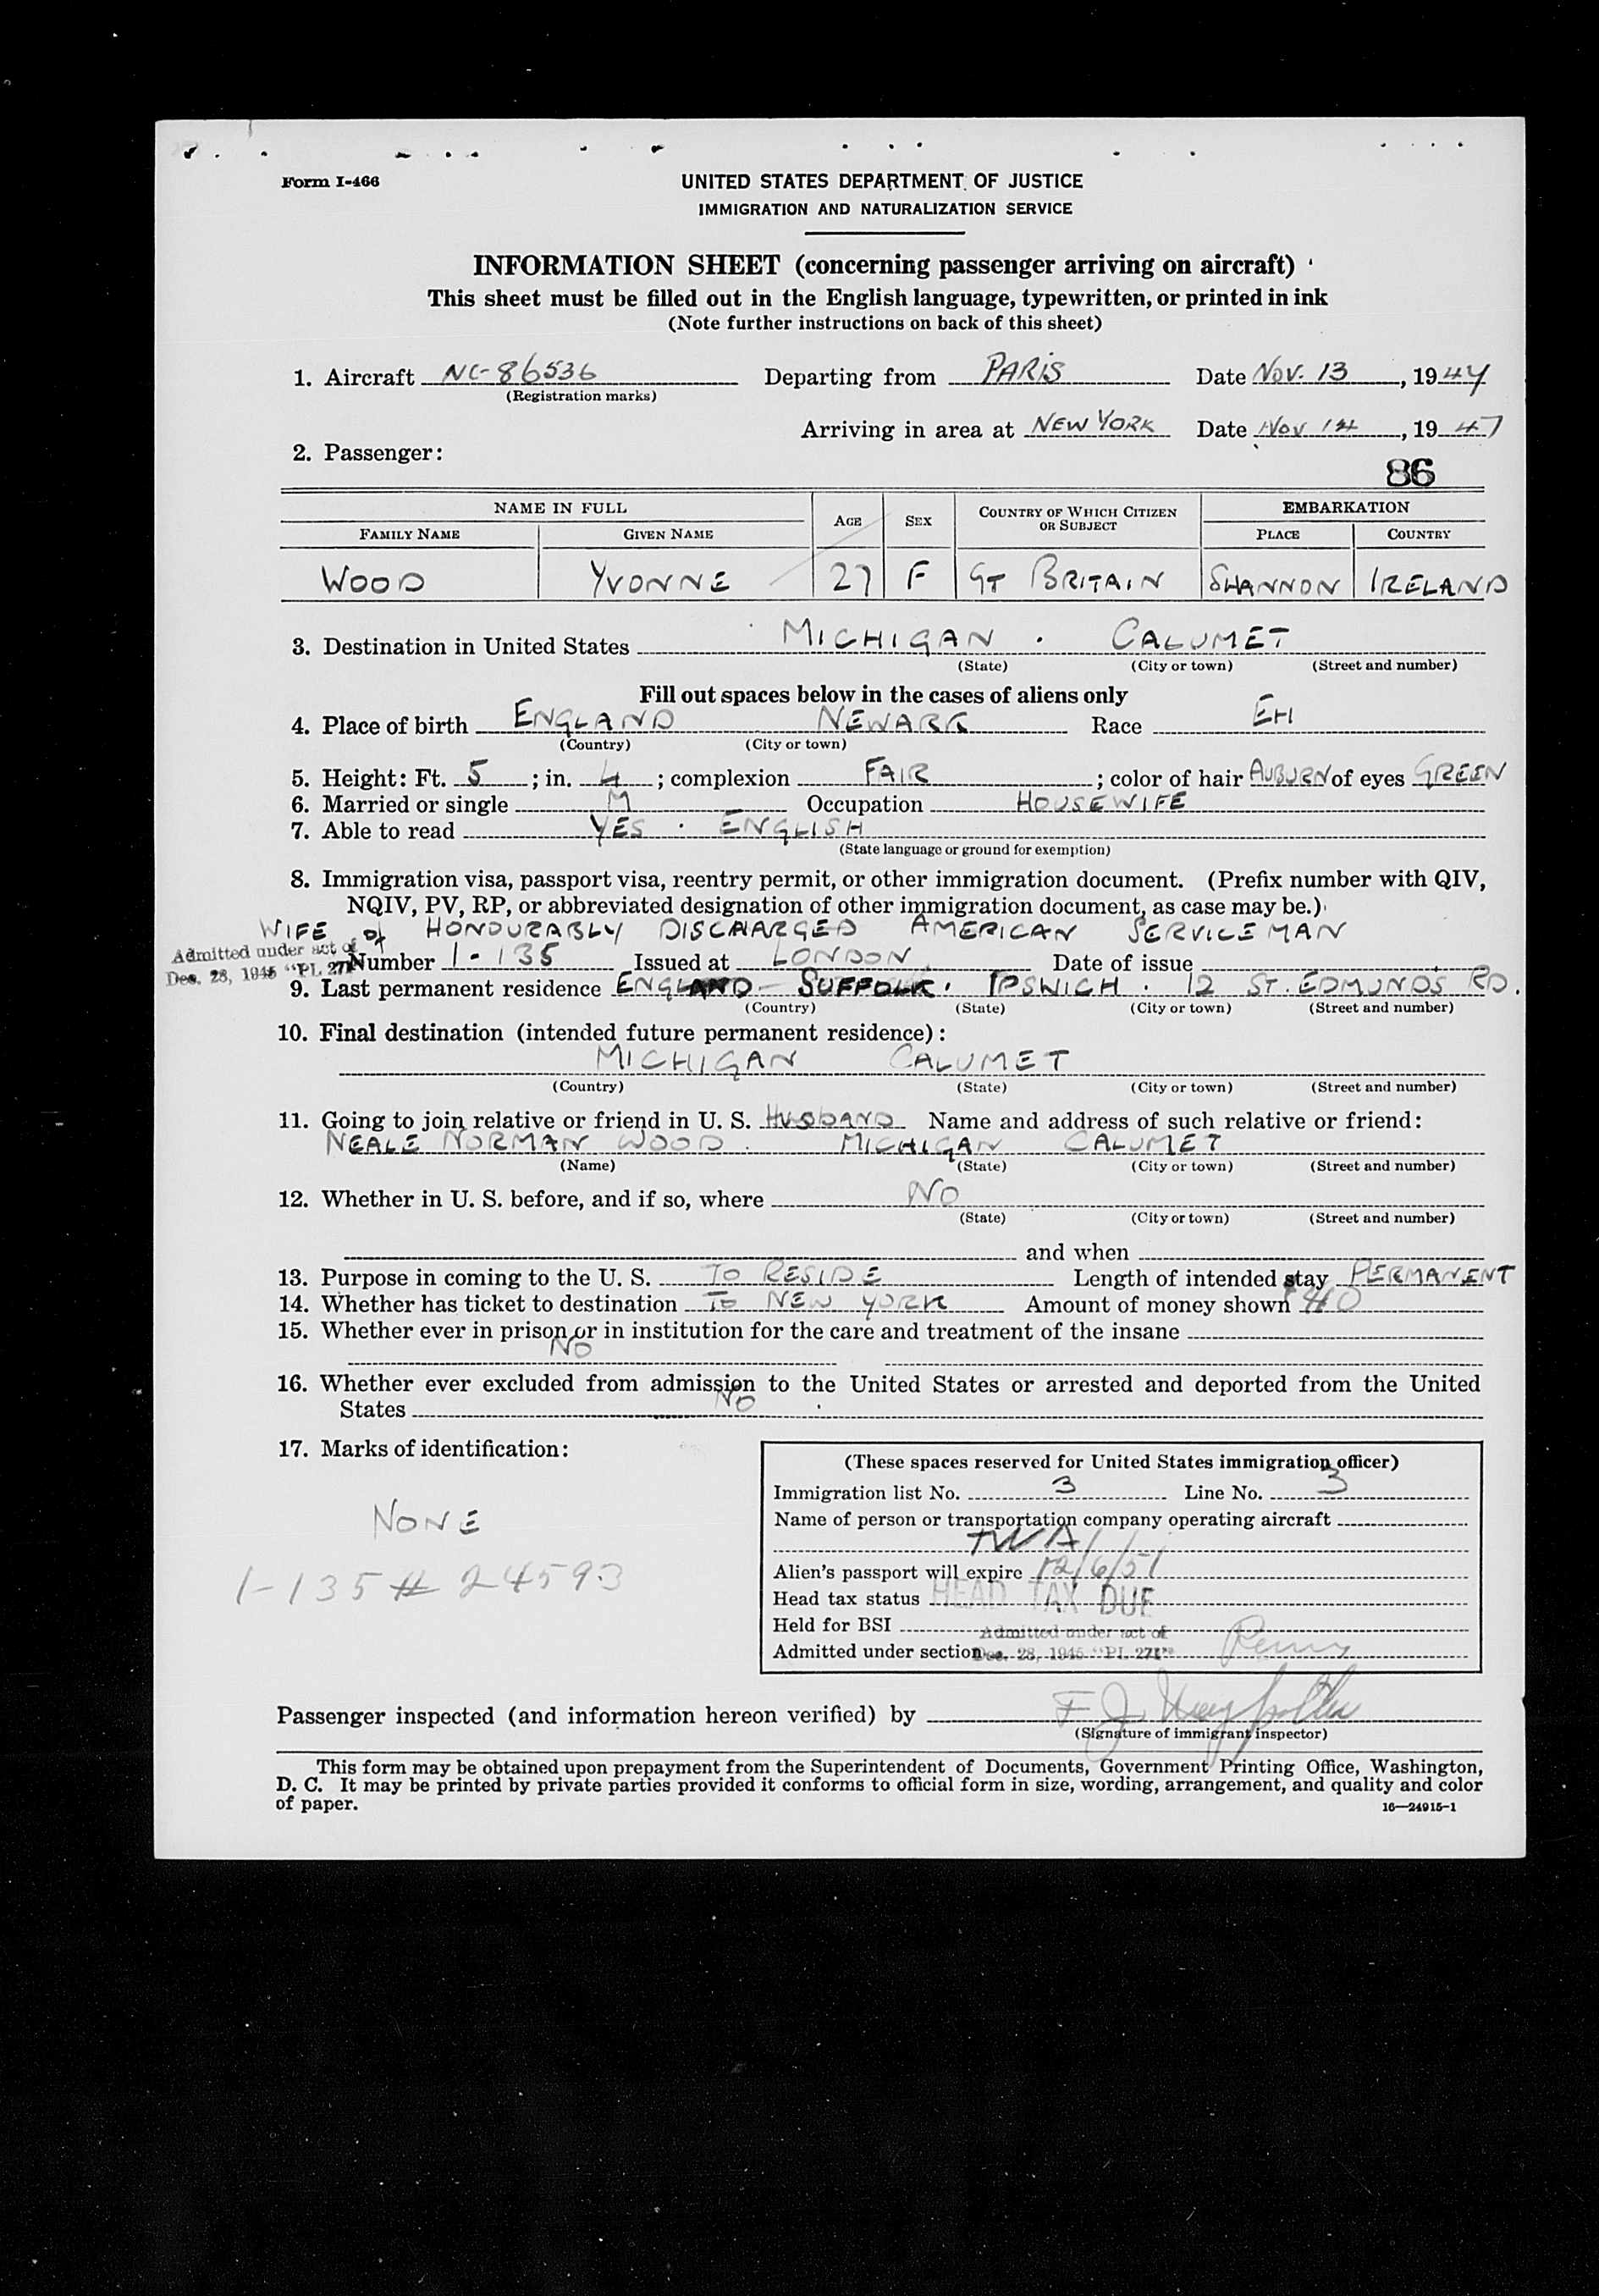 Form I-466
UNITED STATES DEPARTMENT OF JUSTICE
IMMIGRATION AND NATURALIZATION SERVICE
INFORMATION SHEET (concerning passenger arriving on aircraft)
This sheet must be filled out in the English language, typewritten, or printed in ink
(Note further instructions on back of this sheet)
1. Aircraft NC-86536 Departing from PARIS Date Nov. 13, 1947
(Registration marks)
Arriving in area at NEW YORK Date Nov 14, 1947
2. Passenger:
86
NAME IN FULL AGE SEX COUNTRY OF WHICH CITIZEN OR SUBJECT EMBARKATION
FAMILY NAME GIVEN NAME PLACE COUNTRY
WOOD YVONNE 27 F GT BRITAIN SHANNON IRELAND
3. Destination in United States MICHIGAN . CALUMET
(State) (City or town) (Street and number)
Fill out spaces below in the cases of aliens only
4. Place of birth ENGLAND NEWARK Race EH
(Country) (City or town)
5. Height: Ft. 5; in. 4; complexion FAIR; color of hair AUBURN of eyes GREEN
6. Married or single M Occupation HOUSEWIFE
7. Able to read YES . ENGLISH
(State language or ground for exemption)
8. Immigration visa, passport visa, reentry permit, or other immigration document. (Prefix number with QIV,
NQIV, PV, RP, or abbreviated designation of other immigration document, as case may be.)
WIFE of HONOURABLY DISCHARGED AMERICAN SERVICEMAN
Admitted under act of
Dec. 28, 1945 "PL 271"
Number 1-135 Issued at LONDON Date of issue
9. Last permanent residence ENGLAND - SUFFOLK . IPSWICH . 12 ST. EDMUNDS RD.
(Country) (State) (City or town) (Street and number)
10. Final destination (intended future permanent residence):
MICHIGAN CALUMET
(Country) (State) (City or town) (Street and number)
11. Going to join relative or friend in U. S. HUSBAND Name and address of such relative or friend:
NEALE NORMAN WOOD . MICHIGAN CALUMET
(Name) (State) (City or town) (Street and number)
12. Whether in U. S. before, and if so, where NO
(State) (City or town) (Street and number)
and when
13. Purpose in coming to the U. S. TO RESIDE Length of intended stay PERMANENT
14. Whether has ticket to destination TO NEW YORK Amount of money shown $40
15. Whether ever in prison or in institution for the care and treatment of the insane
NO
16. Whether ever excluded from admission to the United States or arrested and deported from the United
States NO
17. Marks of identification:
NONE
1-135 # 24593
(These spaces reserved for United States immigration officer)
Immigration list No. 3 Line No. 3
Name of person or transportation company operating aircraft
TWA
Alien's passport will expire 12/6/51
Head tax status HEAD TAX DUE
Held for BSI
Admitted under section Admitted under act of Dec. 28, 1945 "PL 271"
Passenger inspected (and information hereon verified) by F J
(Signature of immigrant inspector)
This form may be obtained upon prepayment from the Superintendent of Documents, Government Printing Office, Washington,
D. C. It may be printed by private parties provided it conforms to official form in size, wording, arrangement, and quality and color
of paper.
16—24915-1